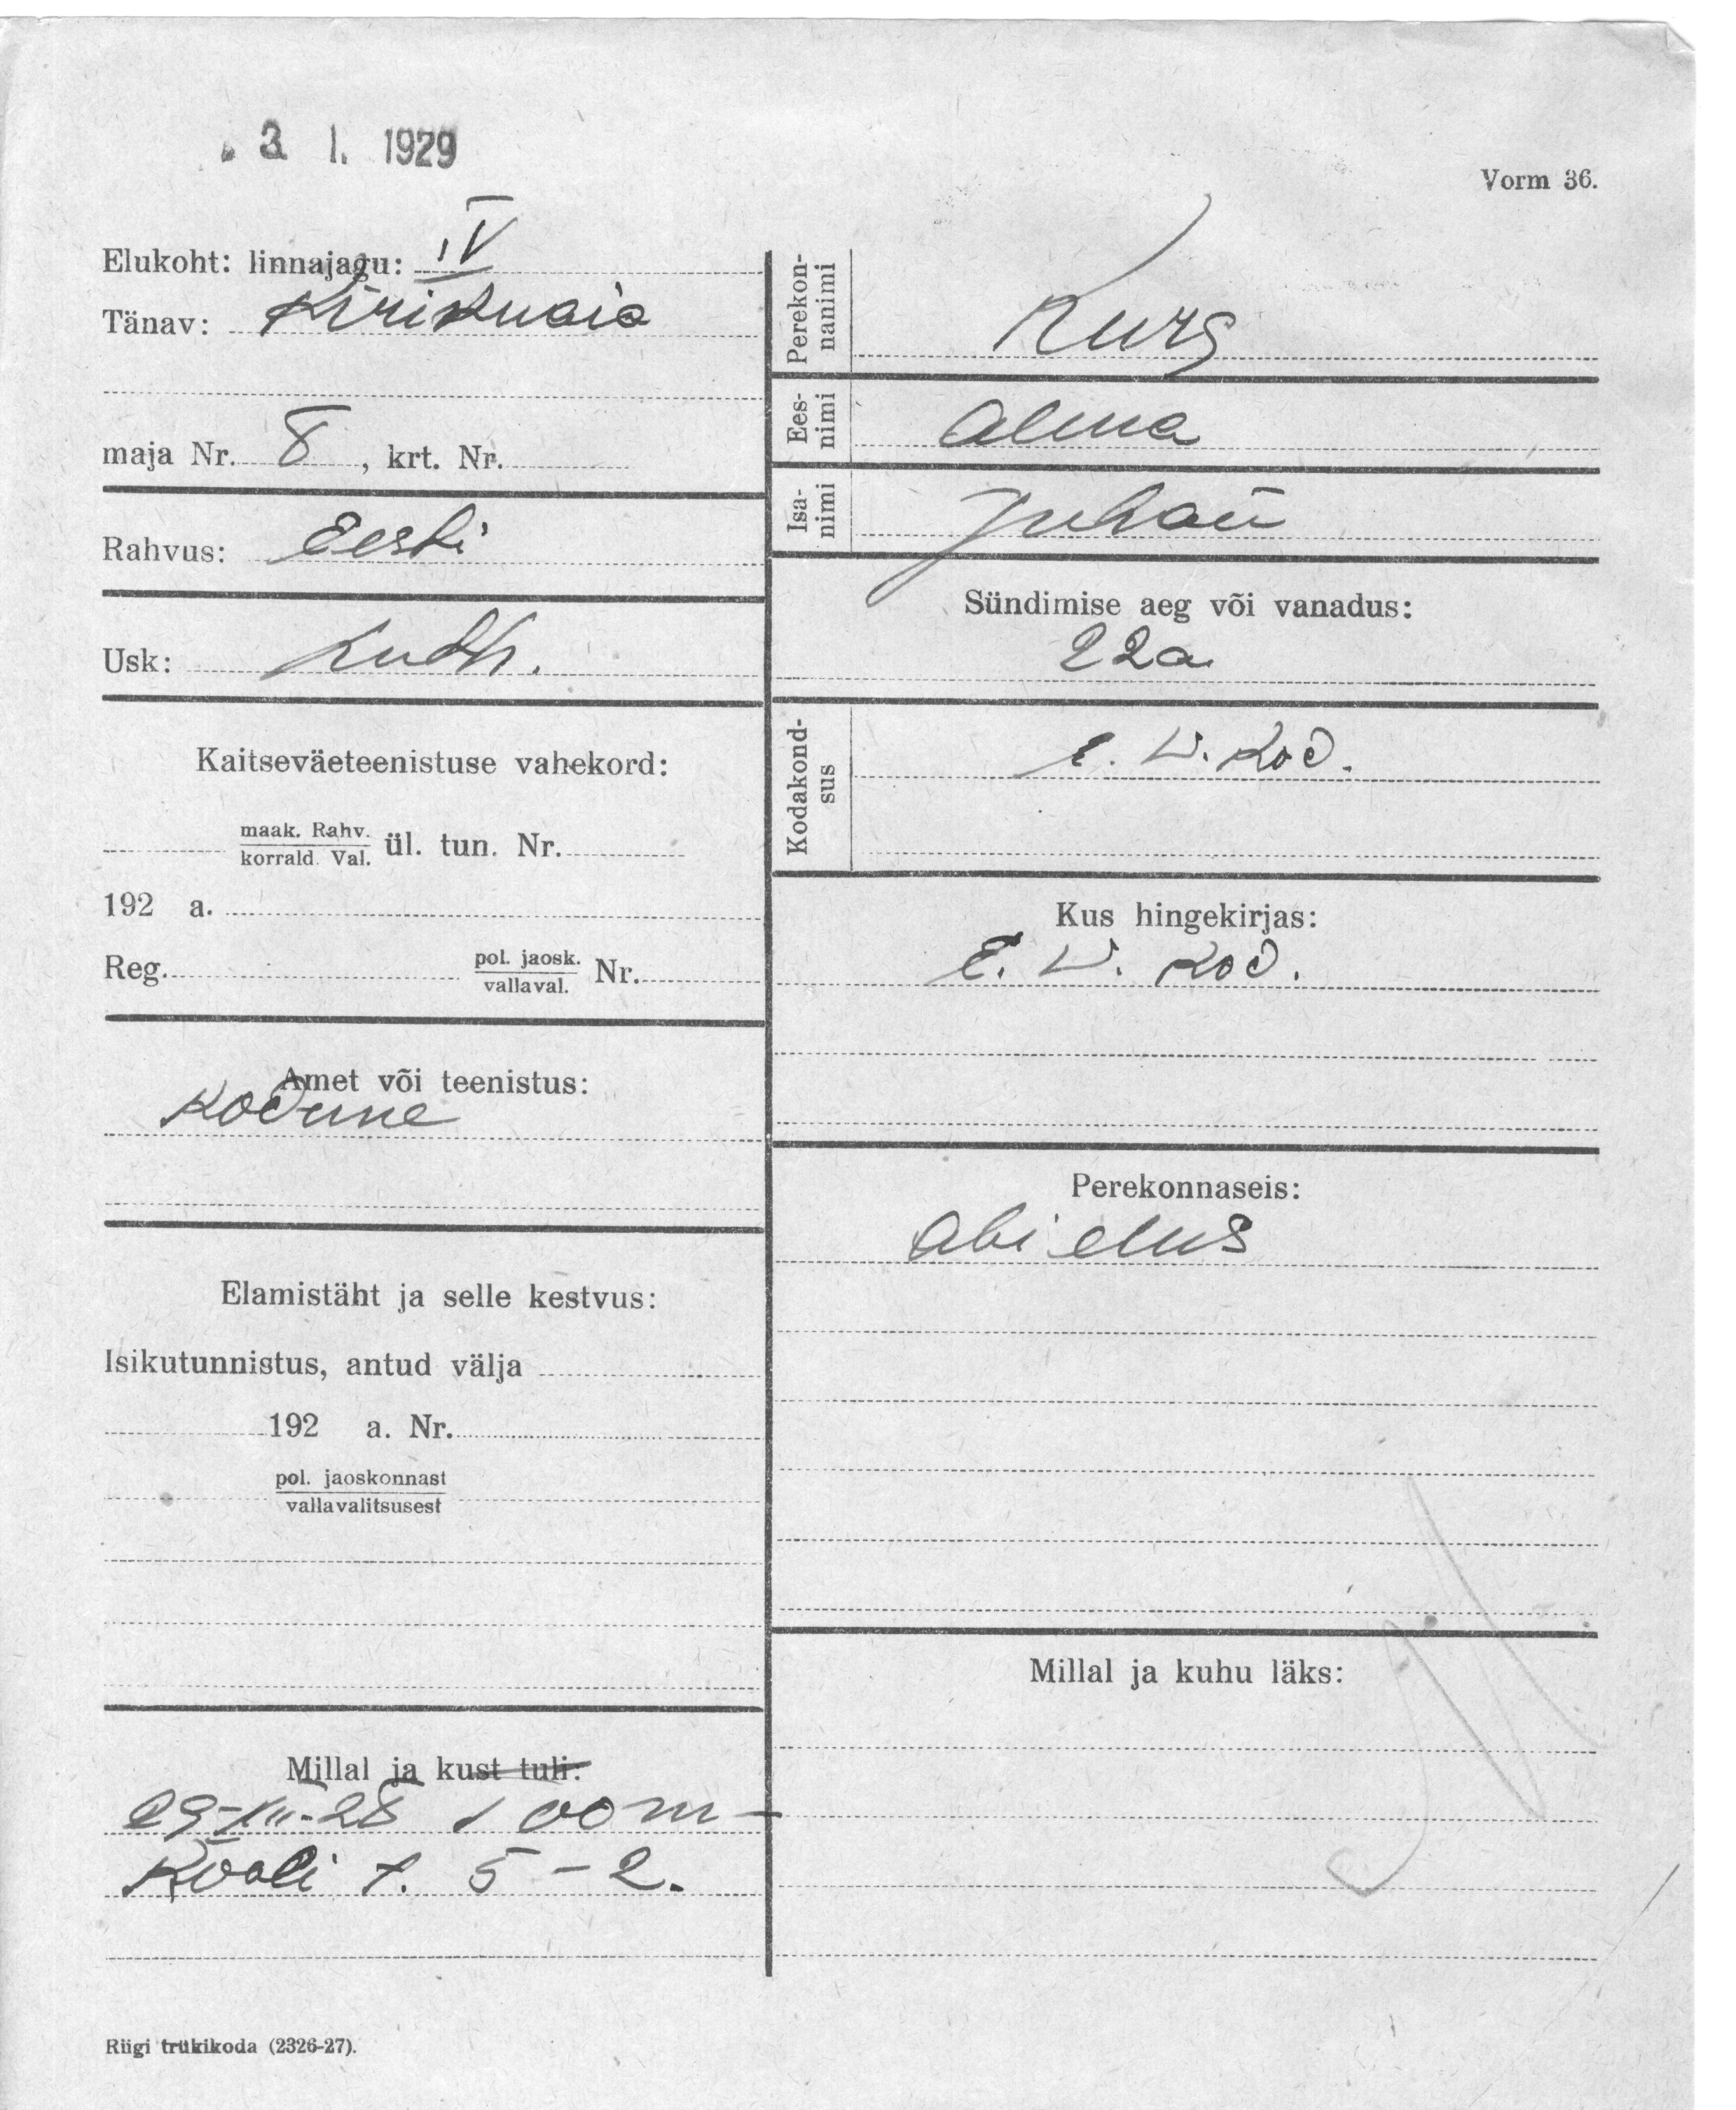 3 I. 1929
Vorm 36.
Elukoht: linnajagu: IV
Tänav: Kirikuaia
maja Nr. 8, krt. Nr.
Rahvus: Eesti
Usk: Luth.
Kaitseväeteenistuse vahekord:
maak. Rahv.
korrald. Val. ül. tun. Nr.
192 a.
Reg. pol. jaosk. Nr.
vallaval.
Amet või teenistus:
Kodune
Elamistäht ja selle kestvus:
Isikutunnistus, antud välja
192 a. Nr.
pol. jaoskonnast
vallavalitsusest
Millal ja kust tuli:
29-XII-28
Kooli t. 5-2.
Perekonnanimi
Kurg
Eesnimi
Alma
Isanimi
Juhan
Sündimise aeg või vanadus:
22a
Kodakondsus
E. W. Kod.
Kus hingekirjas:
E. W. Kod.
Perekonnaseis:
abielus
Millal ja kuhu läks:
Riigi trükikoda (2326-27).